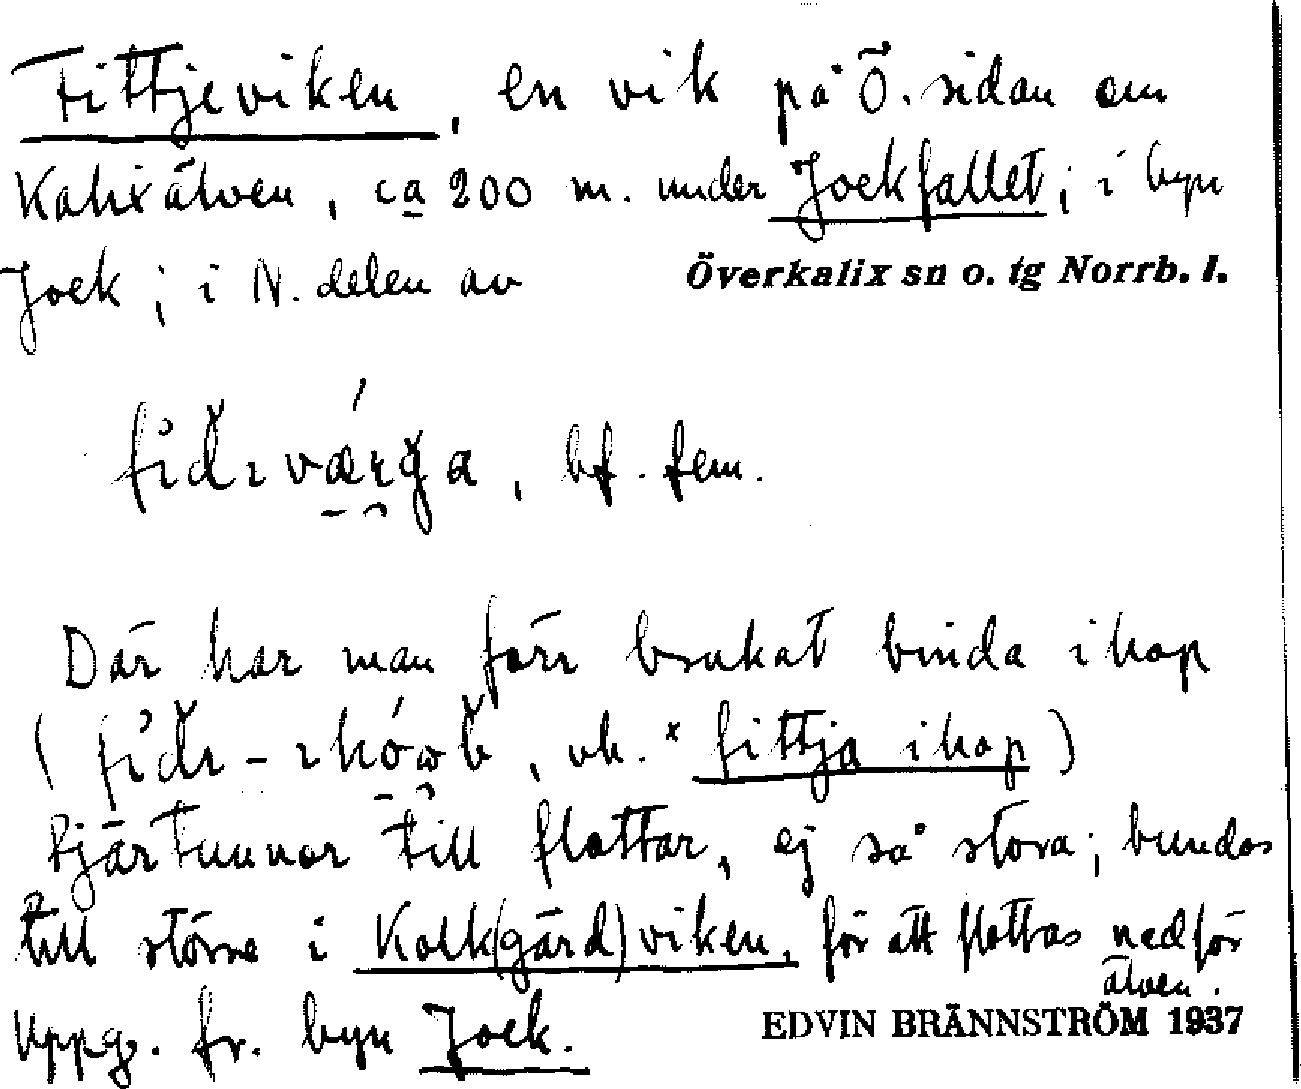 Fittjeviken, en vik på Ö. sidan om
Kalixälven, ca 200 m. under Jockfallet; i byn
Jock; i N. delen av Överkalix sn o. tg Norrb. l.
bf. fem.
Där har man förr brukat binda ihop
( vb. * fittja ihop )
tjärtunnor till flottar, ej så stora; bundos
till större i Kolk(gärd)viken, för att flottas nedför
älven.
Uppg. fr. byn Jock. EDVIN BRÄNNSTRÖM 1937